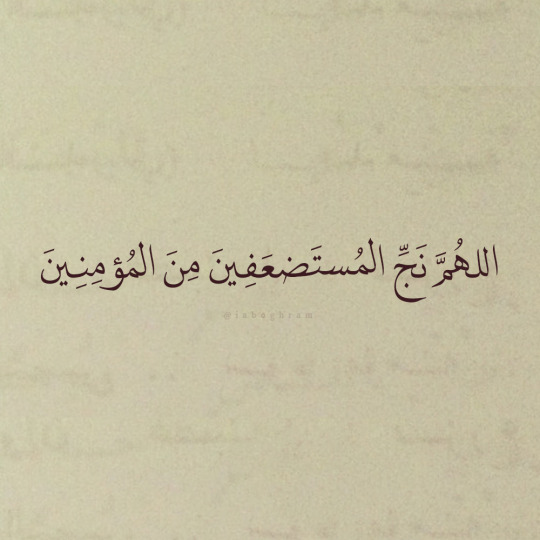 اللهُمَّ نَجِّ المُستَضعَفِينَ مِنَ المُؤمِنِينَ